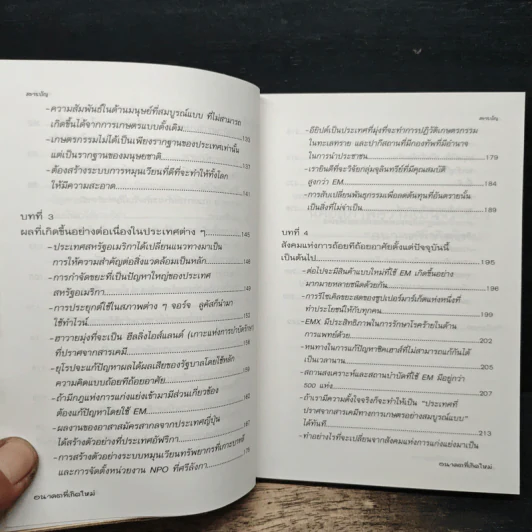 สารบัญ
-ความสัมพันธ์ในด้านมนุษย์ที่สมบูรณ์แบบ ที่ไม่สามารถ
เกิดขึ้นได้จากการเกษตรแบบดั้งเดิม 133
-เกษตรกรรมไม่ได้เป็นเพียงรากฐานของประเทศเท่านั้น
แต่เป็นรากฐานของมนุษยชาติ 137
-ต้องสร้างระบบการหมุนเวียนที่ดีที่จะทำให้ทั้งโลก
ให้มีความสะอาด 141
บทที่ 3
ผลที่เกิดขึ้นอย่างต่อเนื่องในประเทศต่าง ๆ 145
-ประเทศสหรัฐอเมริกาได้เปลี่ยนแนวทางมาเป็น
การให้ความสำคัญต่อสิ่งแวดล้อมเป็นหลัก
-การกำจัดขยะที่เป็นปัญหาใหญ่ของประเทศ
สหรัฐอเมริกา
-การประยุกต์ใช้ในสภาพต่าง ๆ จอร์จ ลูคัสก็นำมา
ใช้ทำไวน์
-ฮาวายมุ่งที่จะเป็น ฮีลลิ่งไอส์แลนด์ (เกาะแห่งการบำบัดรักษา)
ที่ปราศจากสารเคมี
-ยุโรปจะแก้ปัญหาผลได้ผลเสียของรัฐบาลโดยใช้หลัก
ความคิดแบบถ้อยทีถ้อยอาศัย
-ถ้ามีกฎแห่งการแก่งแย่งเข้ามามีส่วนเกี่ยวข้อง
ต้องแก้ปัญหาโดยใช้ EM
-ผลงานของอาสาสมัครสากลจากประเทศญี่ปุ่น
ได้สร้างตัวอย่างที่ประเทศอัฟริกา
-การสร้างตัวอย่างระบบหมุนเวียนทรัพยากรที่เกาะบาหลี
และการจัดตั้งหน่วยงาน NPO ที่ศรีลังกา
สารบัญ
-อียิปต์เป็นประเทศที่มุ่งที่จะทำการปฏิวัติเกษตรกรรม
ในทะเลทราย และปากีสถานที่มีกองทัพที่มีอำนาจ
ในการนำประชาชน 179
-เรายินดีที่จะวิจัยกลุ่มจุลินทรีย์ที่มีคุณสมบัติ
สูงกว่า EM 184
-การสับเปลี่ยนพันธุกรรมเพื่อลดต้นทุกที่อันตรายนั้น
เป็นสิ่งที่ไม่จำเป็น 189
บทที่ 4
สังคมแห่งการถ้อยทีถ้อยอาศัยตั้งแต่ปัจจุบันนี้
เป็นต้นไป 195
-ต่อไปจะมีสินค้าแบบใหม่ที่ใช้ EM เกิดขึ้นอย่าง
มากมายหลายชนิดด้วยกัน 196
-การรีไซเคิลขยะสดของซุปเปอร์มาร์เก็ตแห่งหนึ่งที่
ทำประโยชน์ให้กับทุกคน 199
-EMX มีประสิทธิภาพในการรักษาโรคร้ายในด้าน
การแพทย์ด้วย 202
-หนทางในการแก้ปัญหาซิคเฮาส์ที่ไม่สามารถแก้กันได้
เป็นเวลานาน 205
-สถานสงเคราะห์และสถานบำบัดที่ใช้ EM มีอยู่กว่า
500 แห่ง 207
-ถ้าเรามีความตั้งใจจริงก็จะทำให้เป็น "ประเทศที่
ปราศจากสารเคมีทางการเกษตรอย่างสมบูรณ์แบบ"
ได้ทันที 213
-ทำอย่างไรที่จะเปลี่ยนจากสังคมแห่งการแก่งแย่งมาเป็น